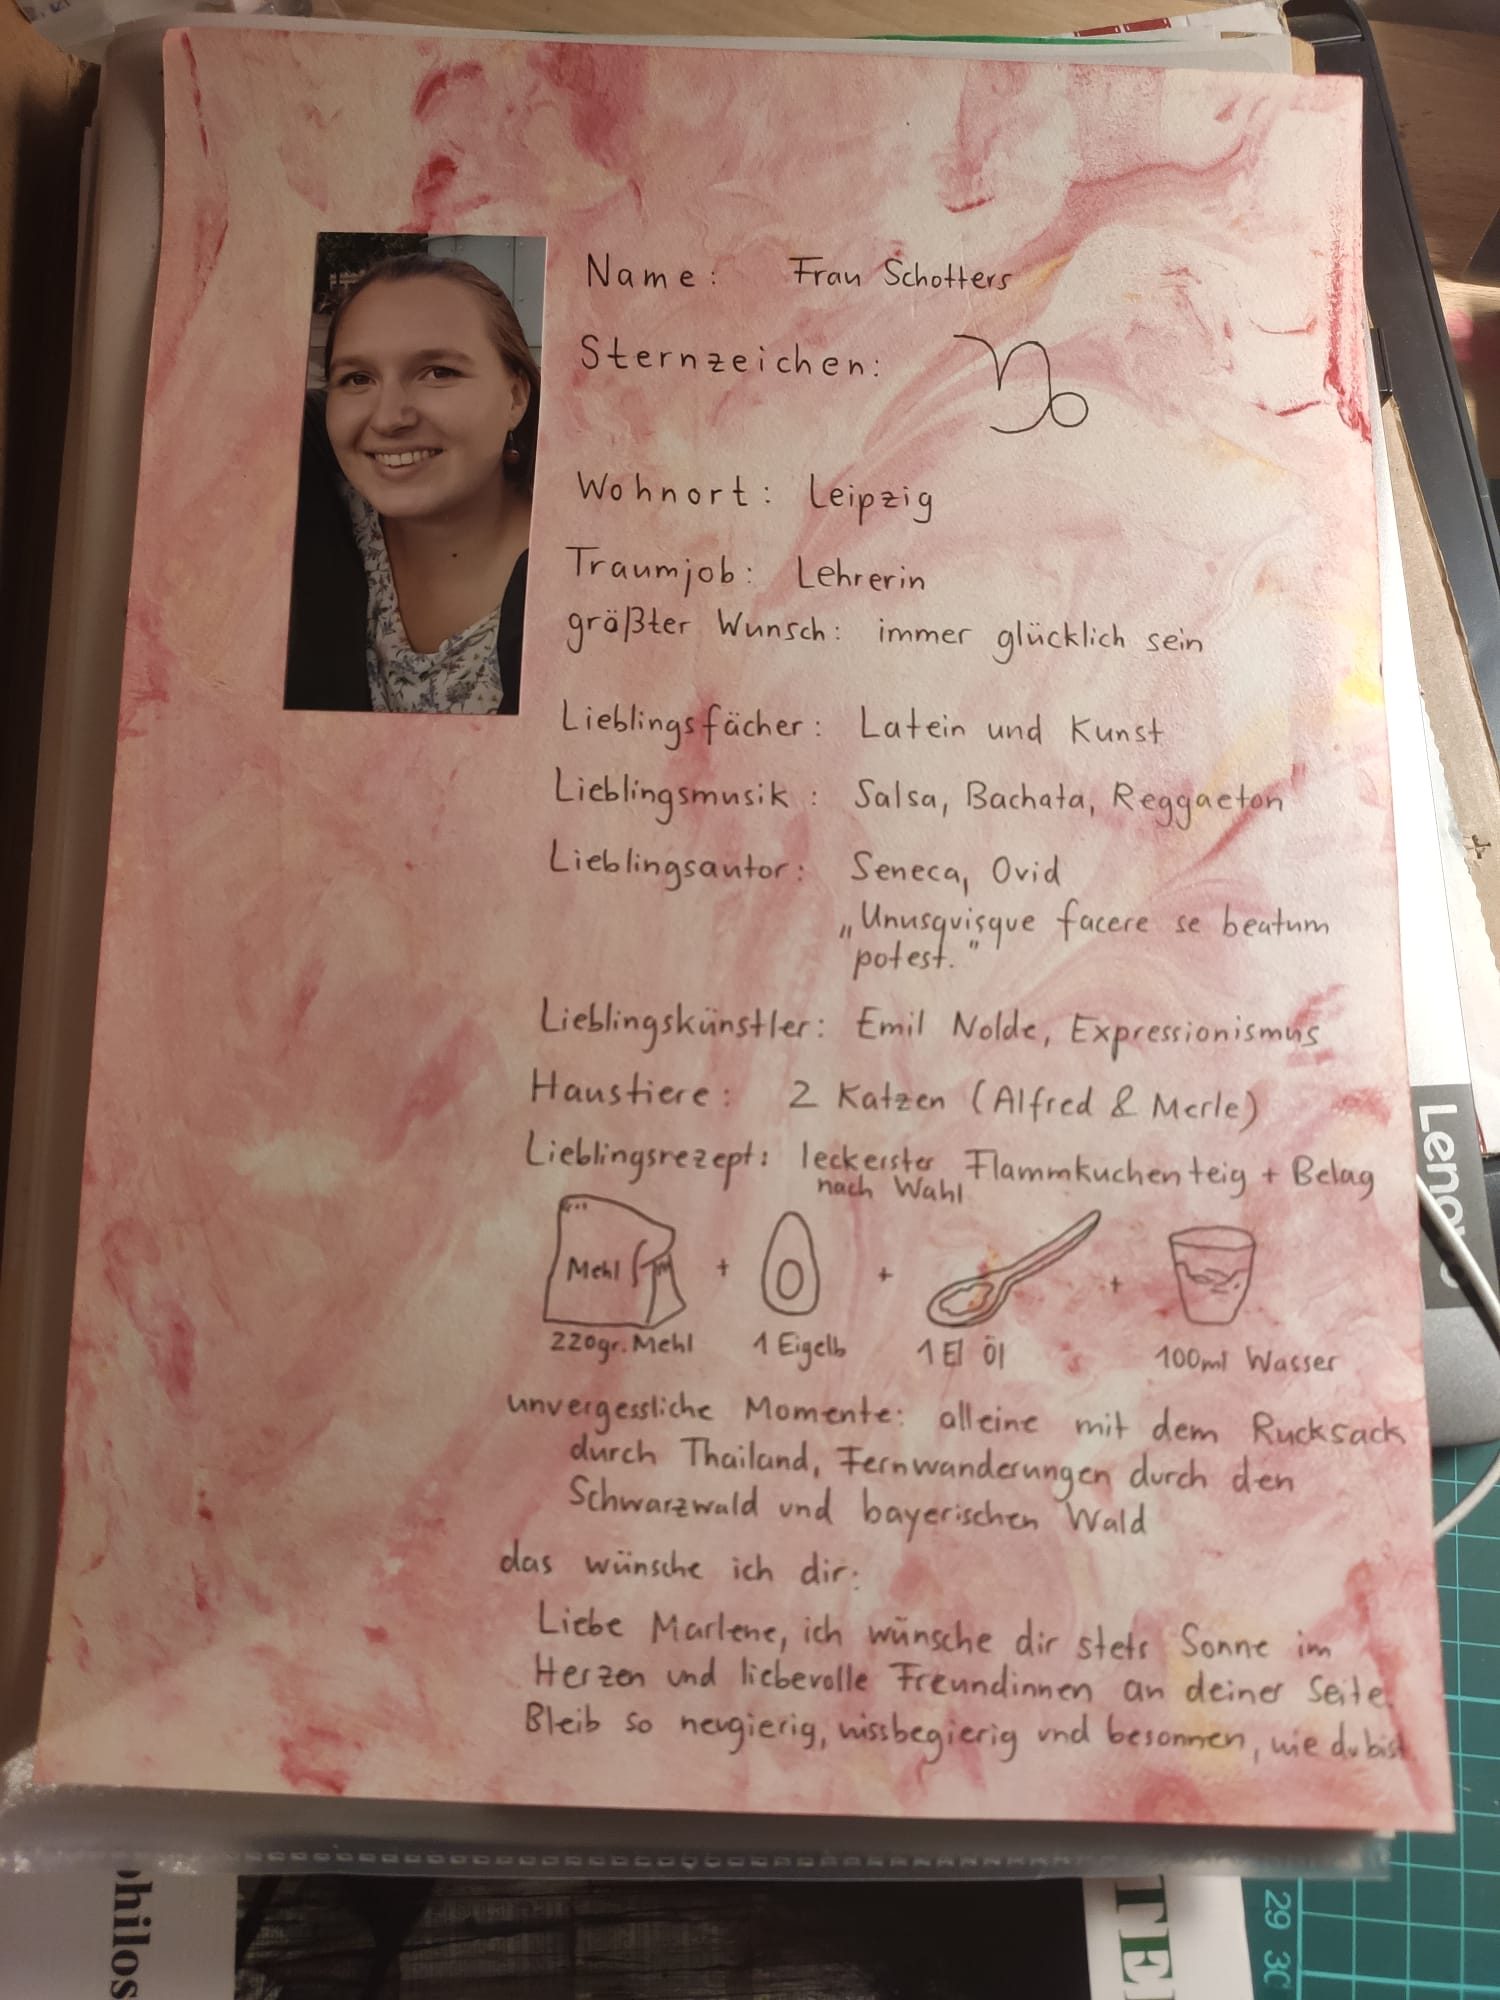 Name: Frau Schotters
Sternzeichen: ♑
Wohnort: Leipzig
Traumjob: Lehrerin
größter Wunsch: immer glücklich sein
Lieblingsfächer: Latein und Kunst
Lieblingsmusik: Salsa, Bachata, Reggaeton
Lieblingsautor: Seneca, Ovid
„Unusquisque facere se beatum
potest."
Lieblingskünstler: Emil Nolde, Expressionismus
Haustiere: 2 Katzen (Alfred & Merle)
Lieblingsrezept: leckerster Flammkuchenteig + Belag
nach Wahl
Mehl + + +
220gr. Mehl 1 Eigelb 1 El Öl 100ml Wasser
unvergessliche Momente: alleine mit dem Rucksack
durch Thailand, Fernwanderungen durch den
Schwarzwald und bayerischen Wald
das wünsche ich dir:
Liebe Marlene, ich wünsche dir stets Sonne im
Herzen und liebevolle Freundinnen an deiner Seite.
Bleib so neugierig, wissbegierig und besonnen, wie du bist
Leno
philos
TE
29 30